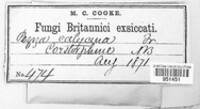 M. C. COOKE.
Fungi Britannici exsiccati.
Peziza calycina
Corstorphine NB
Aug 1871
No. 474
951451